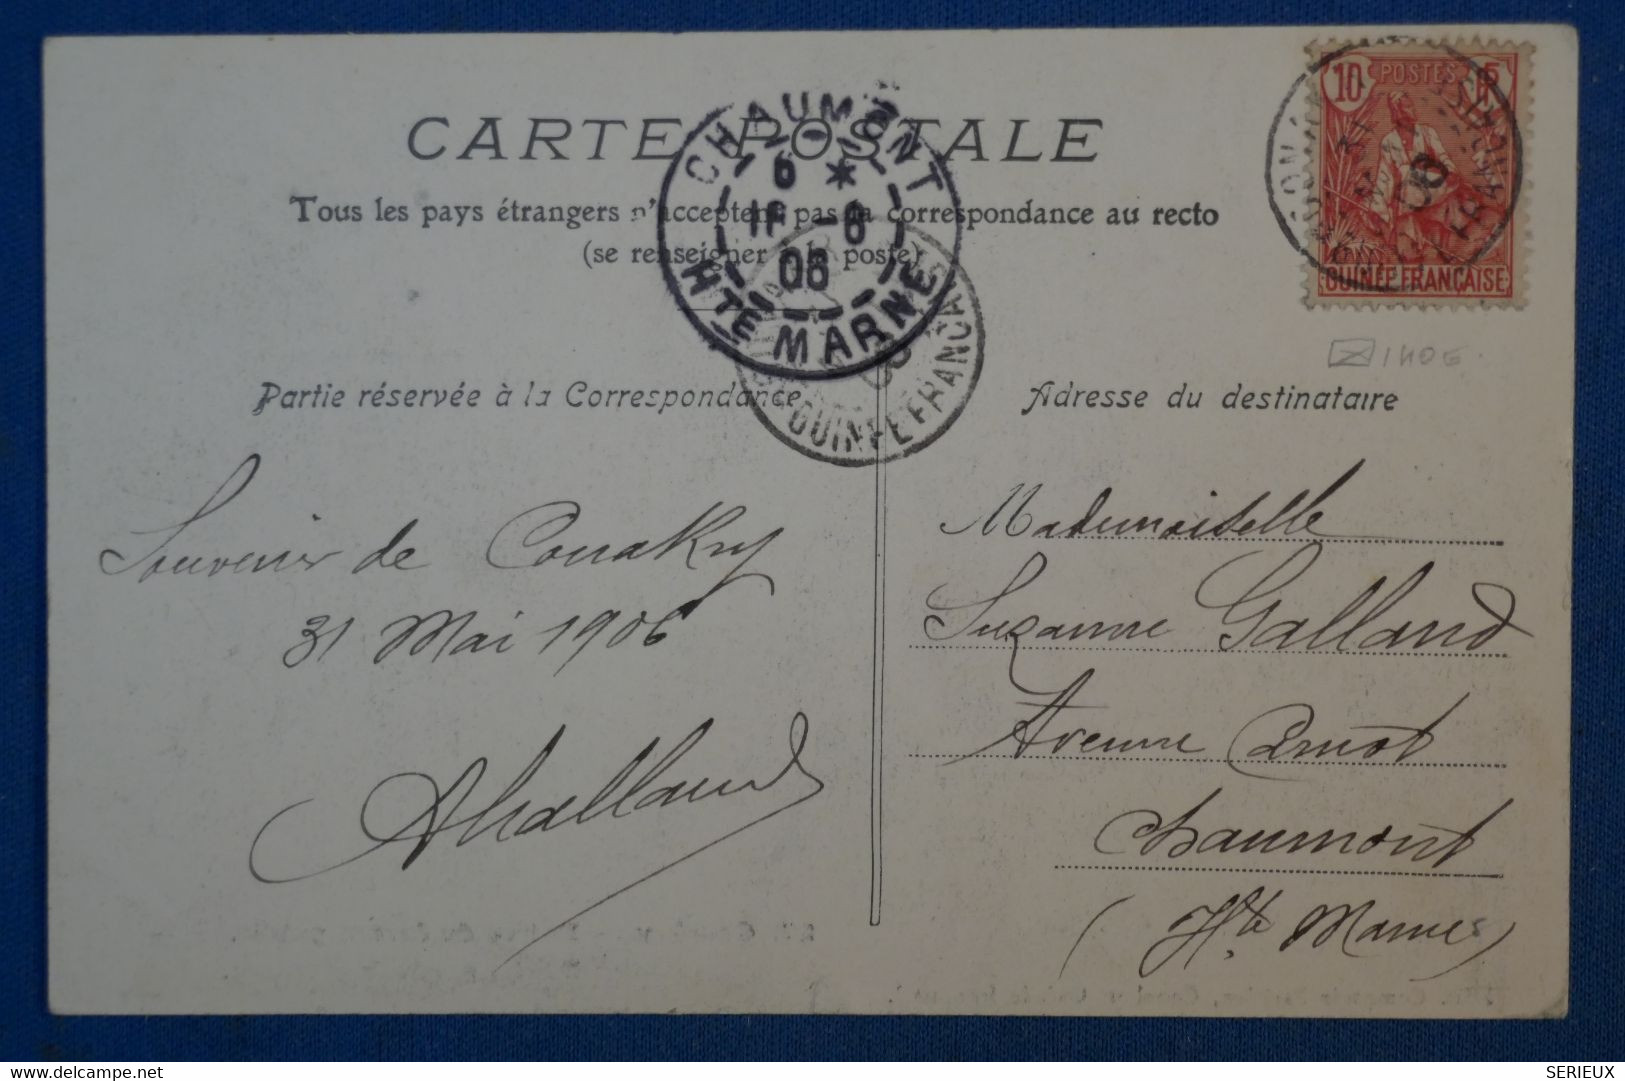 CARTE POSTALE
Tous les pays étrangers n'acceptent pas la correspondance au recto
(se renseigner à la poste)
CHAUMONT
6 *
17 -6
06
HTE MARNE
GUINÉE FRANÇAISE
10 POSTES
CONAKRY
31
MAI
06
GUINÉE FRANÇAISE
GUINÉE FRANÇAISE
140€
Partie réservée à la Correspondance
Adresse du destinataire
Souvenir de Conakry
31 Mai 1906
AGalland
Mademoiselle
Suzanne Galland
Avenue Carnot
Chaumont
(Hte Marne)
www.delcampe.net
SERIEUX